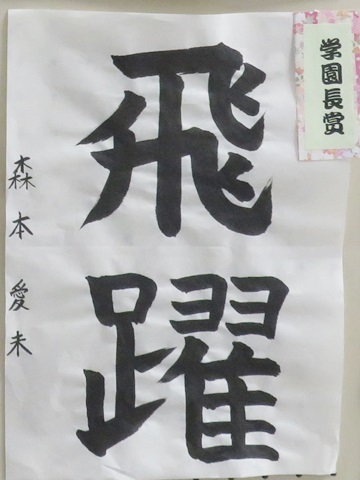 学園長賞
飛躍
森本愛未